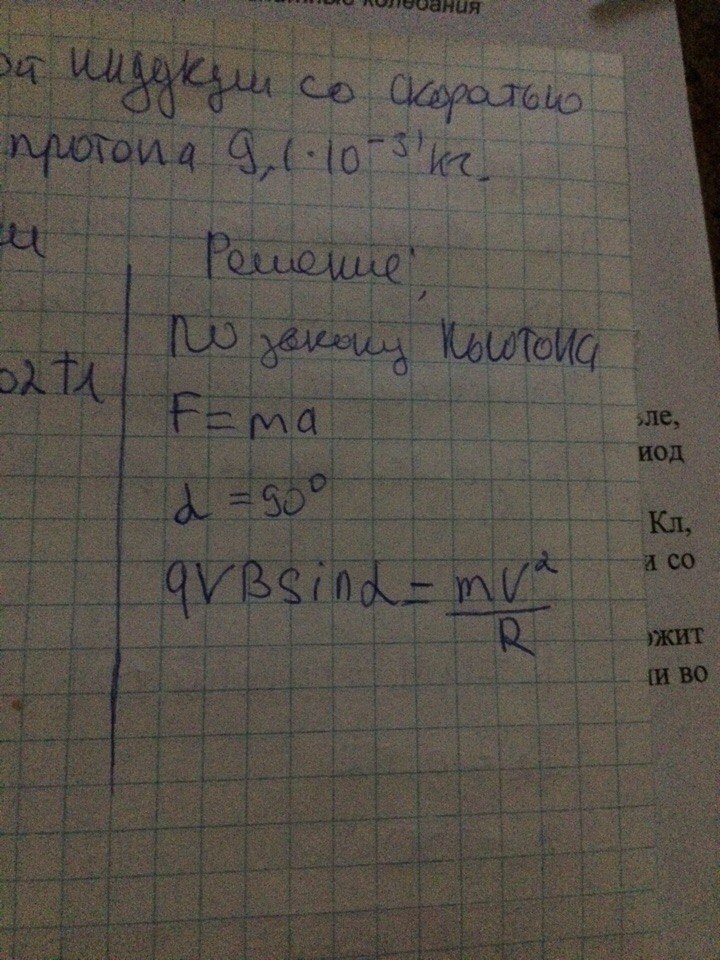 колебания
индукции со скоростью
протона 9,1·10⁻³¹ кг.
Решение:
по закону Ньютона
F = ma
α = 90°
qVBsinα = mV²/R
иод
Кл,
и со
ожит
и во